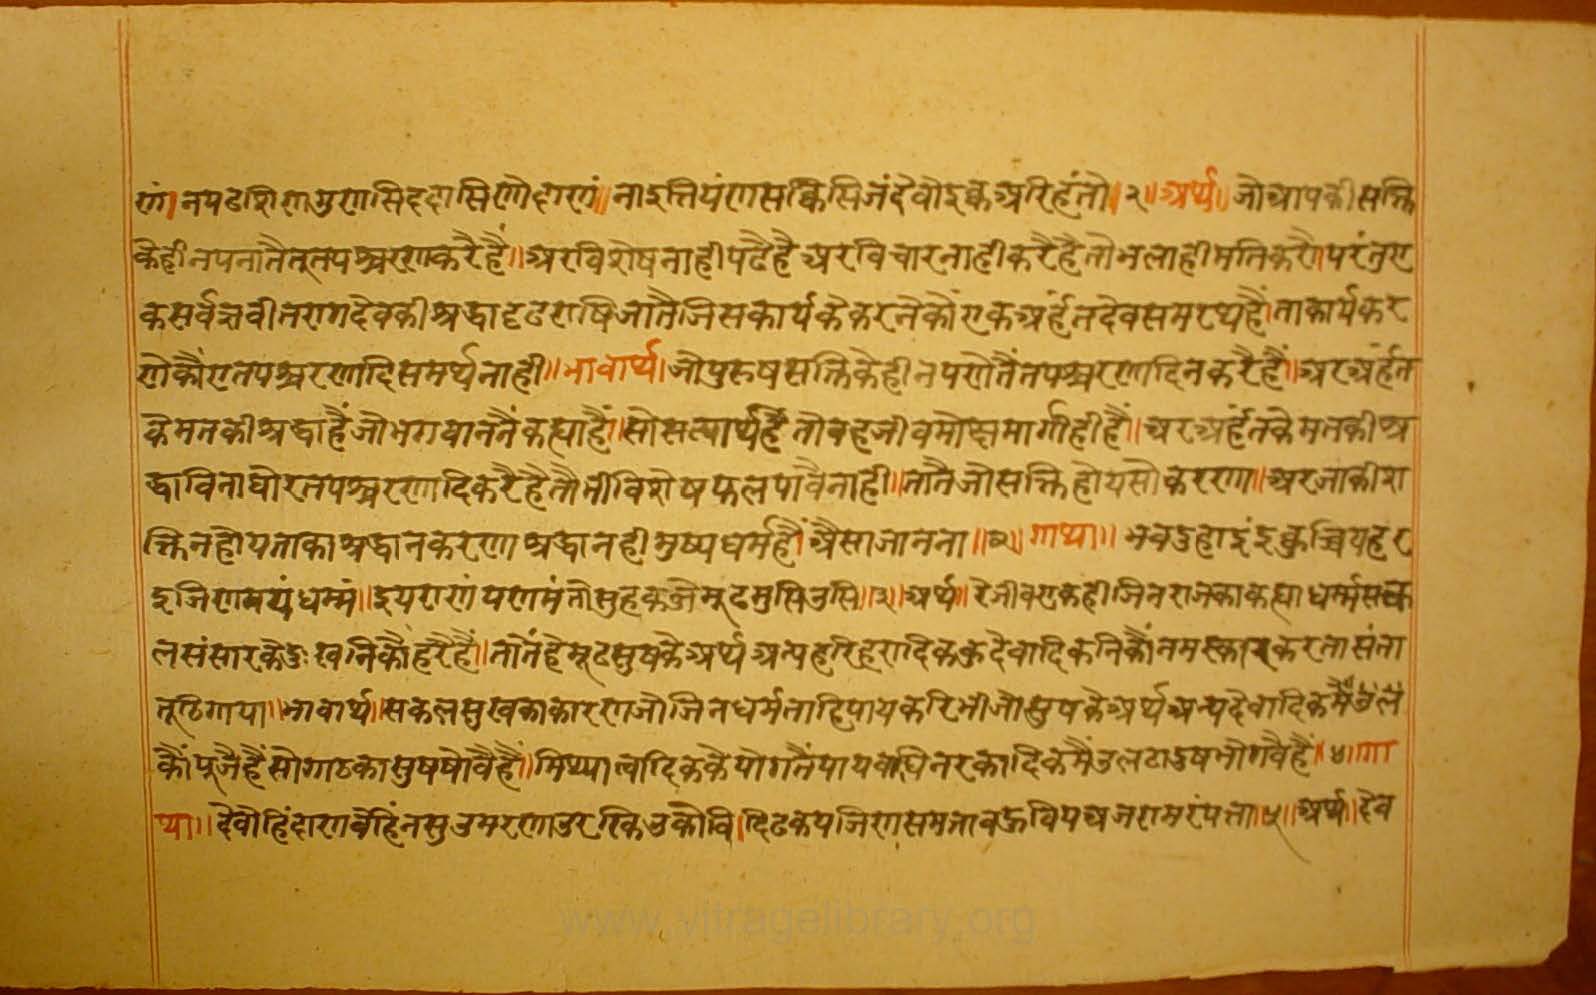 रणं। नपढशि णगुणसि ददासि णोदाणं॥ ना इत्तियं णसक्किसि जं देवो इक्क अरिहंतो॥२॥ अर्थ॥ जो आपकी सक्ति
के हीनपनातै तू तपश्चरण करै है॥ अर विशेष नाही पढै है अर विचार नाही करै है तो भला ही मति करौ। परंतु ए
क सर्वज्ञ वीतराग देव की श्रद्धा दृढ राषि जातै जिस कार्य के करने कौं एक अर्हंत देव समरथ है। ता कार्य कर
णे कौं ए तपश्चरणादि समर्थ नाही॥ भावार्थ। जो पुरुष सक्ति के हीनपणे तैं तपश्चरणादि न करै है॥ अर अर्हंत
के मत की श्रद्धा है जो भगवान नैं कह्या है॥ सो सत्यार्थ है तो वह जीव मोक्षमार्गी ही है॥ अर अर्हंत के मत की श्र
द्धा विना घोर तपश्चरणादि करै है तौ भी विशेष फल पावै नाही॥ तातै जो सक्ति होय सो करणा॥ अर जाकी श
क्ति न होय ताका श्रद्धान करणा श्रद्धान ही मुष्य धर्म है। अैसा जानना॥३॥ गाथा॥ भवदुहाइं इक्कुच्चिय हर
इ जिणमयं धम्मं॥ इयराणं पणमंतो सुहकज्जे मूढ मुसिउसि॥३॥ अर्थ॥ रे जीव एक ही जिनराज का कह्या धर्म्म सक
ल संसार के दुःखनि कौं हरै है॥ तातैं हे मूढ सुष के अर्थ अन्य हरिहरादिक कुदेवादिकनि कौं नमस्कार करता संता
तू ठिगाया॥ भावार्थ॥ सकल सुख का कारण जो जिनधर्म ताहि पाय करि भी जो सुष के अर्थ अन्य देवादिक
कौं पूजै है सो गाठ का सुष षोवै है॥ मिथ्यात्वादिक के योग तैं पाप बांधि नरकादिक मैं उलटा दुष भोगवै है॥४। गा
था॥ देवेहिं दाणवेहिं न सुउ मरणाउ रक्किउ कोवि। दिढकय जिणसमत्ता वहु विपअजरामरं पत्ता॥५॥ अर्थ॥ देव
www.vitragelibrary.org